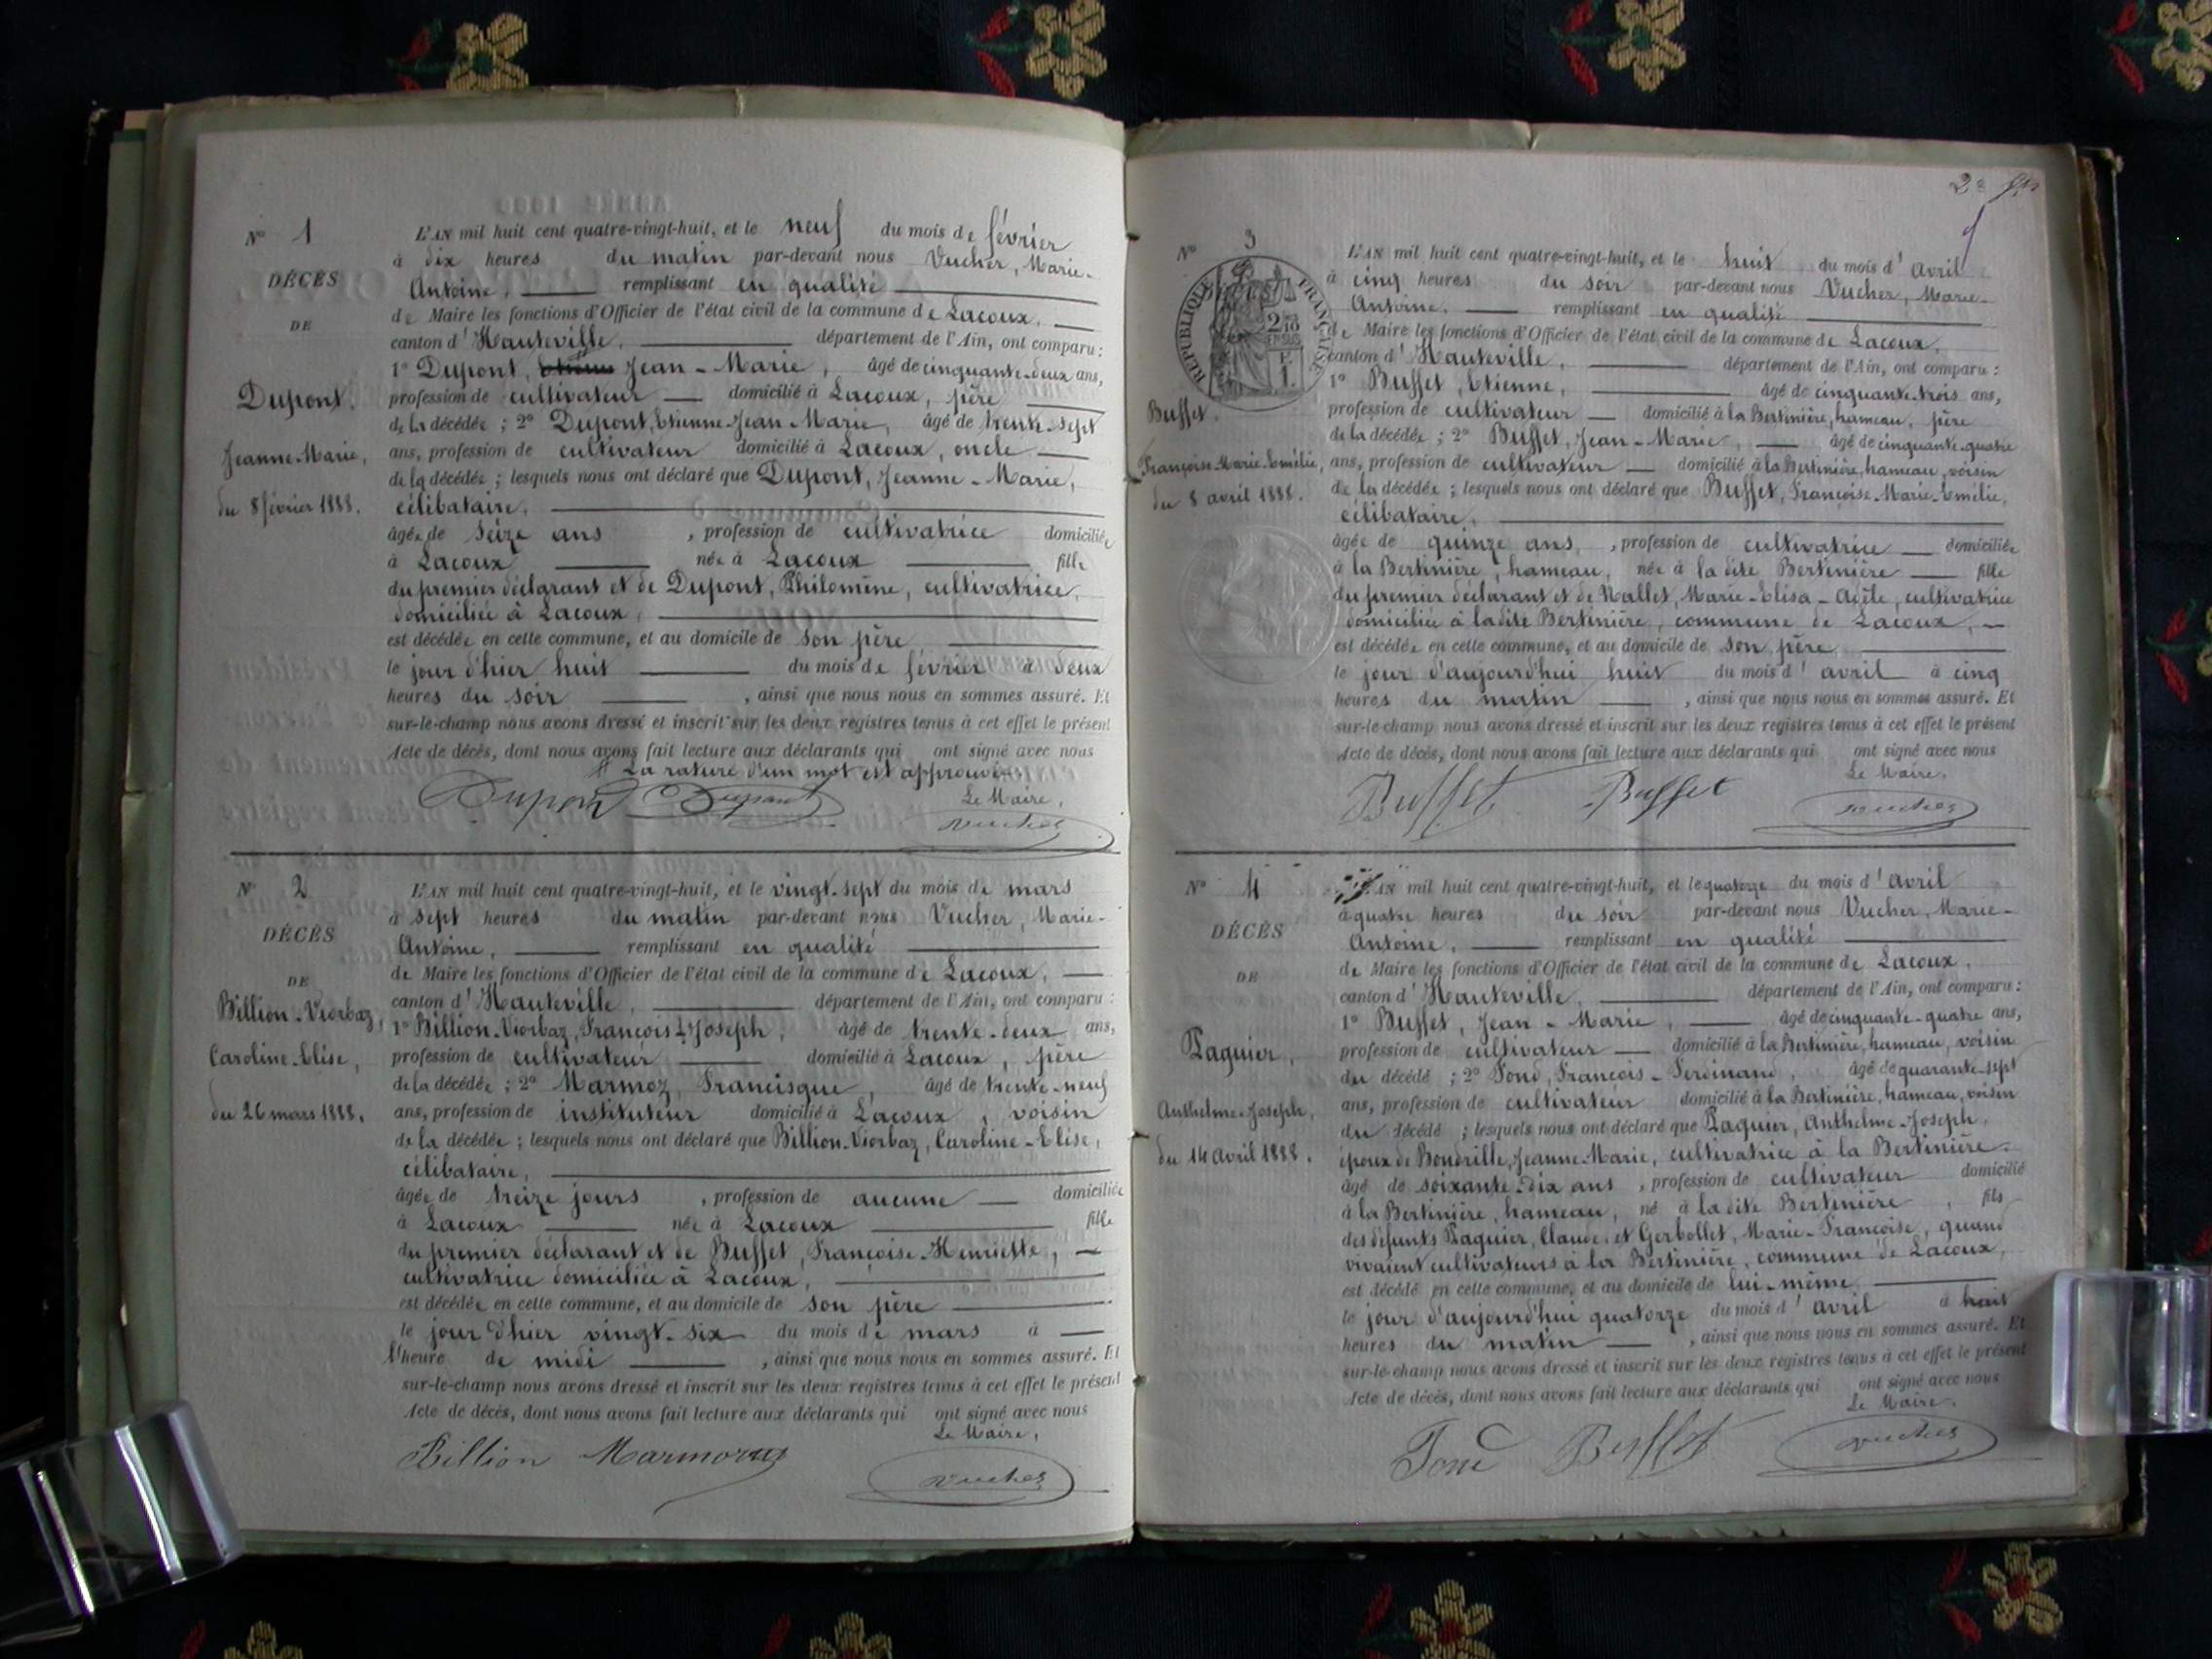 N° 1
DÉCÈS
DE
Dupont,
Jeanne-Marie,
du 8 février 1888.
L'AN mil huit cent quatre-vingt-huit, et le neuf du mois de février
à dix heures du matin par-devant nous Vucher, Marie-
Antoine, remplissant en qualité
de Maire les fonctions d'Officier de l'état civil de la commune de Lacoux,
canton d'Hauteville, département de l'Ain, ont comparu :
1° Dupont, Jean-Marie, âgé de cinquante-deux ans,
profession de cultivateur domicilié à Lacoux, père
de la décédée ; 2° Dupont, Etienne-Jean-Marie, âgé de trente-sept
ans, profession de cultivateur domicilié à Lacoux, oncle
de la décédée ; lesquels nous ont déclaré que Dupont, Jeanne-Marie,
célibataire,
âgée de seize ans, profession de cultivatrice domiciliée
à Lacoux née à Lacoux fille
du premier déclarant et de Dupont, Philomène, cultivatrice,
domiciliée à Lacoux,
est décédée en cette commune, et au domicile de son père
le jour d'hier huit du mois de février à deux
heures du soir, ainsi que nous nous en sommes assuré. Et
sur-le-champ nous avons dressé et inscrit sur les deux registres tenus à cet effet le présent
Acte de décès, dont nous avons fait lecture aux déclarants qui ont signé avec nous
La rature d'un mot est approuvée
Le Maire,
Dupont Dupont Vucher
N° 2
DÉCÈS
DE
Billion-Viorbaz,
Caroline-Elise,
du 26 mars 1888.
L'AN mil huit cent quatre-vingt-huit, et le vingt-sept du mois de mars
à sept heures du matin par-devant nous Vucher, Marie-
Antoine, remplissant en qualité
de Maire les fonctions d'Officier de l'état civil de la commune de Lacoux,
canton d'Hauteville, département de l'Ain, ont comparu :
1° Billion-Viorbaz, François Joseph, âgé de trente-deux ans,
profession de cultivateur domicilié à Lacoux, père
de la décédée ; 2° Marmoz, Francisque, âgé de trente-neuf
ans, profession de instituteur domicilié à Lacoux, voisin
de la décédée ; lesquels nous ont déclaré que Billion-Viorbaz, Caroline-Elise,
célibataire,
âgée de treize jours, profession de aucune domiciliée
à Lacoux née à Lacoux fille
du premier déclarant et de Buffet, Françoise-Henriette,
cultivatrice domiciliée à Lacoux,
est décédée en cette commune, et au domicile de son père
le jour d'hier vingt-six du mois de mars à
l'heure de midi, ainsi que nous nous en sommes assuré. Et
sur-le-champ nous avons dressé et inscrit sur les deux registres tenus à cet effet le présent
Acte de décès, dont nous avons fait lecture aux déclarants qui ont signé avec nous
Le Maire,
Billion Marmoz Vucher
2e
N° 3
RÉPUBLIQUE FRANÇAISE
2/10 EN SUS
F. 1.
Buffet,
Françoise-Marie-Emélie,
du 8 avril 1888.
L'AN mil huit cent quatre-vingt-huit, et le huit du mois d'avril
à cinq heures du soir par-devant nous Vucher, Marie-
Antoine, remplissant en qualité
de Maire les fonctions d'Officier de l'état civil de la commune de Lacoux,
canton d'Hauteville, département de l'Ain, ont comparu :
1° Buffet, Etienne, âgé de cinquante-trois ans,
profession de cultivateur domicilié à la Bertinière, hameau, père
de la décédée ; 2° Buffet, Jean-Marie, âgé de cinquante-quatre
ans, profession de cultivateur domicilié à la Bertinière, hameau, voisin
de la décédée ; lesquels nous ont déclaré que Buffet, Françoise-Marie-Emélie,
célibataire,
âgée de quinze ans, profession de cultivatrice domiciliée
à la Bertinière, hameau, née à la dite Bertinière fille
du premier déclarant et de Nallet, Marie-Elisa-Adèle, cultivatrice
domiciliée à la dite Bertinière, commune de Lacoux,
est décédée en cette commune, et au domicile de son père,
le jour d'aujourd'hui huit du mois d'avril à cinq
heures du matin, ainsi que nous nous en sommes assuré. Et
sur-le-champ nous avons dressé et inscrit sur les deux registres tenus à cet effet le présent
Acte de décès, dont nous avons fait lecture aux déclarants qui ont signé avec nous
Le Maire,
Buffet Buffet Vucher
N° 4
DÉCÈS
DE
Paquier,
Anthelme-Joseph,
du 14 avril 1888.
L'AN mil huit cent quatre-vingt-huit, et le quatorze du mois d'avril
à quatre heures du soir par-devant nous Vucher, Marie-
Antoine, remplissant en qualité
de Maire les fonctions d'Officier de l'état civil de la commune de Lacoux,
canton d'Hauteville, département de l'Ain, ont comparu :
1° Buffet, Jean-Marie, âgé de cinquante-quatre ans,
profession de cultivateur domicilié à la Bertinière, hameau, voisin
du décédé ; 2° Fond, François-Ferdinand, âgé de quarante-sept
ans, profession de cultivateur domicilié à la Bertinière, hameau, voisin
du décédé ; lesquels nous ont déclaré que Paquier, Anthelme-Joseph,
époux de Bondrille, Jeanne-Marie, cultivatrice à la Bertinière.
âgé de soixante-dix ans, profession de cultivateur domicilié
à la Bertinière, hameau, né à la dite Bertinière, fils
des défunts Paquier, Claude, et Gerbollet, Marie-Françoise, quand
vivaient cultivateurs à la Bertinière, commune de Lacoux,
est décédé en cette commune, et au domicile de lui-même,
le jour d'aujourd'hui quatorze du mois d'avril à huit
heures du matin, ainsi que nous nous en sommes assuré. Et
sur-le-champ nous avons dressé et inscrit sur les deux registres tenus à cet effet le présent
Acte de décès, dont nous avons fait lecture aux déclarants qui ont signé avec nous
Le Maire,
Fond Buffet Vucher